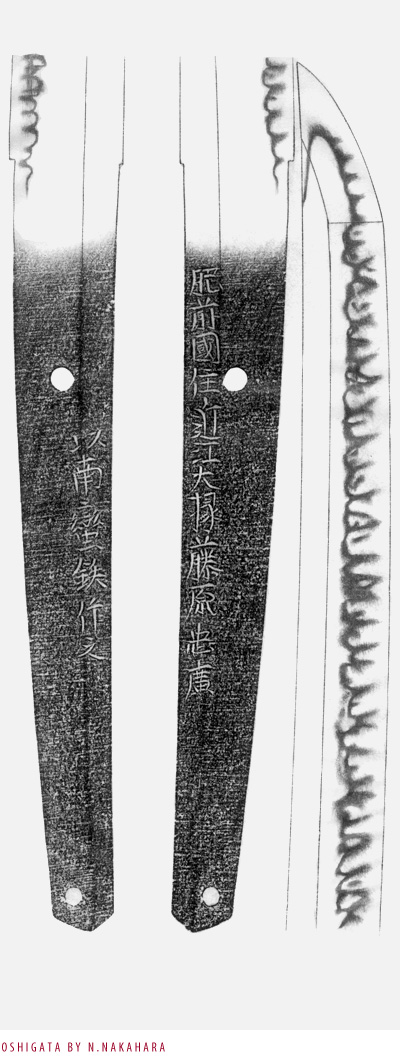 肥前國住近江大掾藤原忠廣
以南蠻鉄作之
OSHIGATA BY N.NAKAHARA